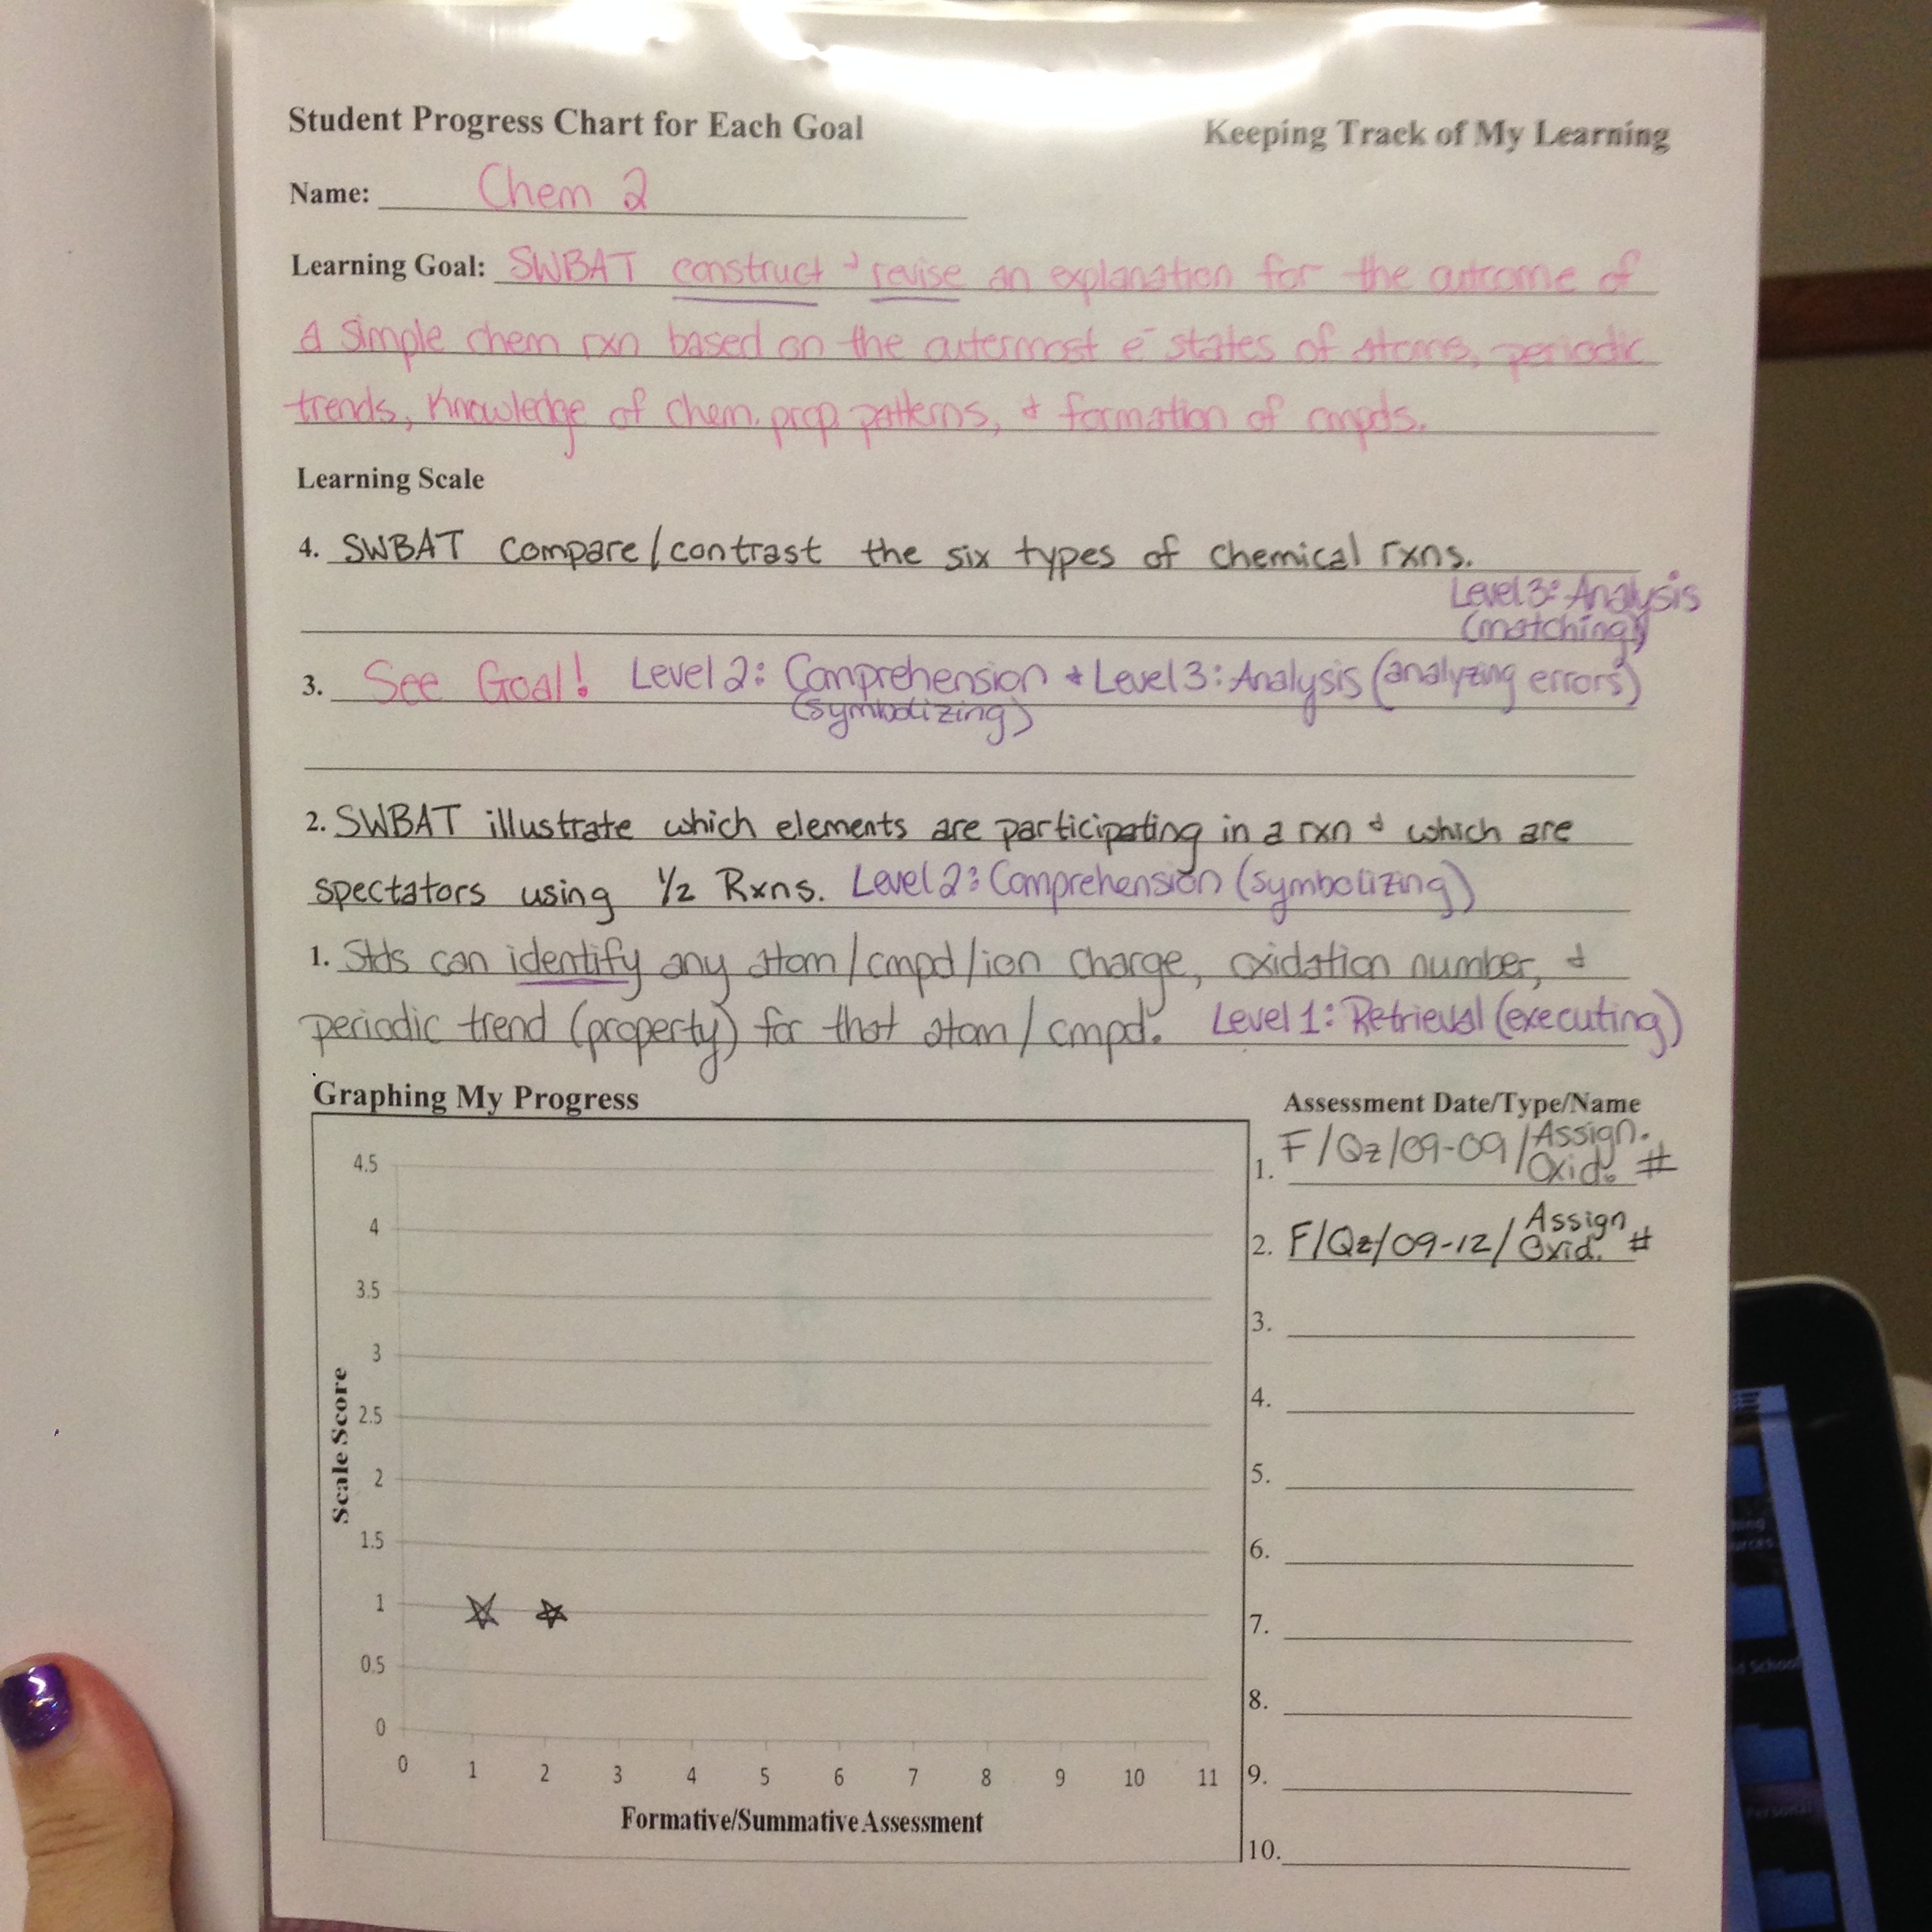 Student Progress Chart for Each Goal
Keeping Track of My Learning
Name: Chem 2
Learning Goal: SWBAT construct & revise an explanation for the outcome of
a simple chem rxn based on the outermost e⁻ states of atoms, periodic
trends, knowledge of chem. prop. patterns, & formation of cmpds.
Learning Scale
4. SWBAT compare/contrast the six types of chemical rxns.
Level 3: Analysis
(matching)
3. See Goal! Level 2: Comprehension & Level 3: Analysis (analyzing errors)
(symbolizing)
2. SWBAT illustrate which elements are participating in a rxn & which are
spectators using ½ Rxns. Level 2: Comprehension (symbolizing)
1. Stds can identify any atom/cmpd/ion charge, oxidation number, &
periodic trend (property) for that atom/cmpd. Level 1: Retrieval (executing)
Graphing My Progress
Assessment Date/Type/Name
1. F/Qz/09-09/Assign.
Oxid. #
2. F/Qz/09-12/Assign
Oxid. #
3.
4.
5.
6.
7.
8.
9.
10.
4.5
4
3.5
3
2.5
2
1.5
1
0.5
0
Scale Score
0 1 2 3 4 5 6 7 8 9 10 11
Formative/Summative Assessment